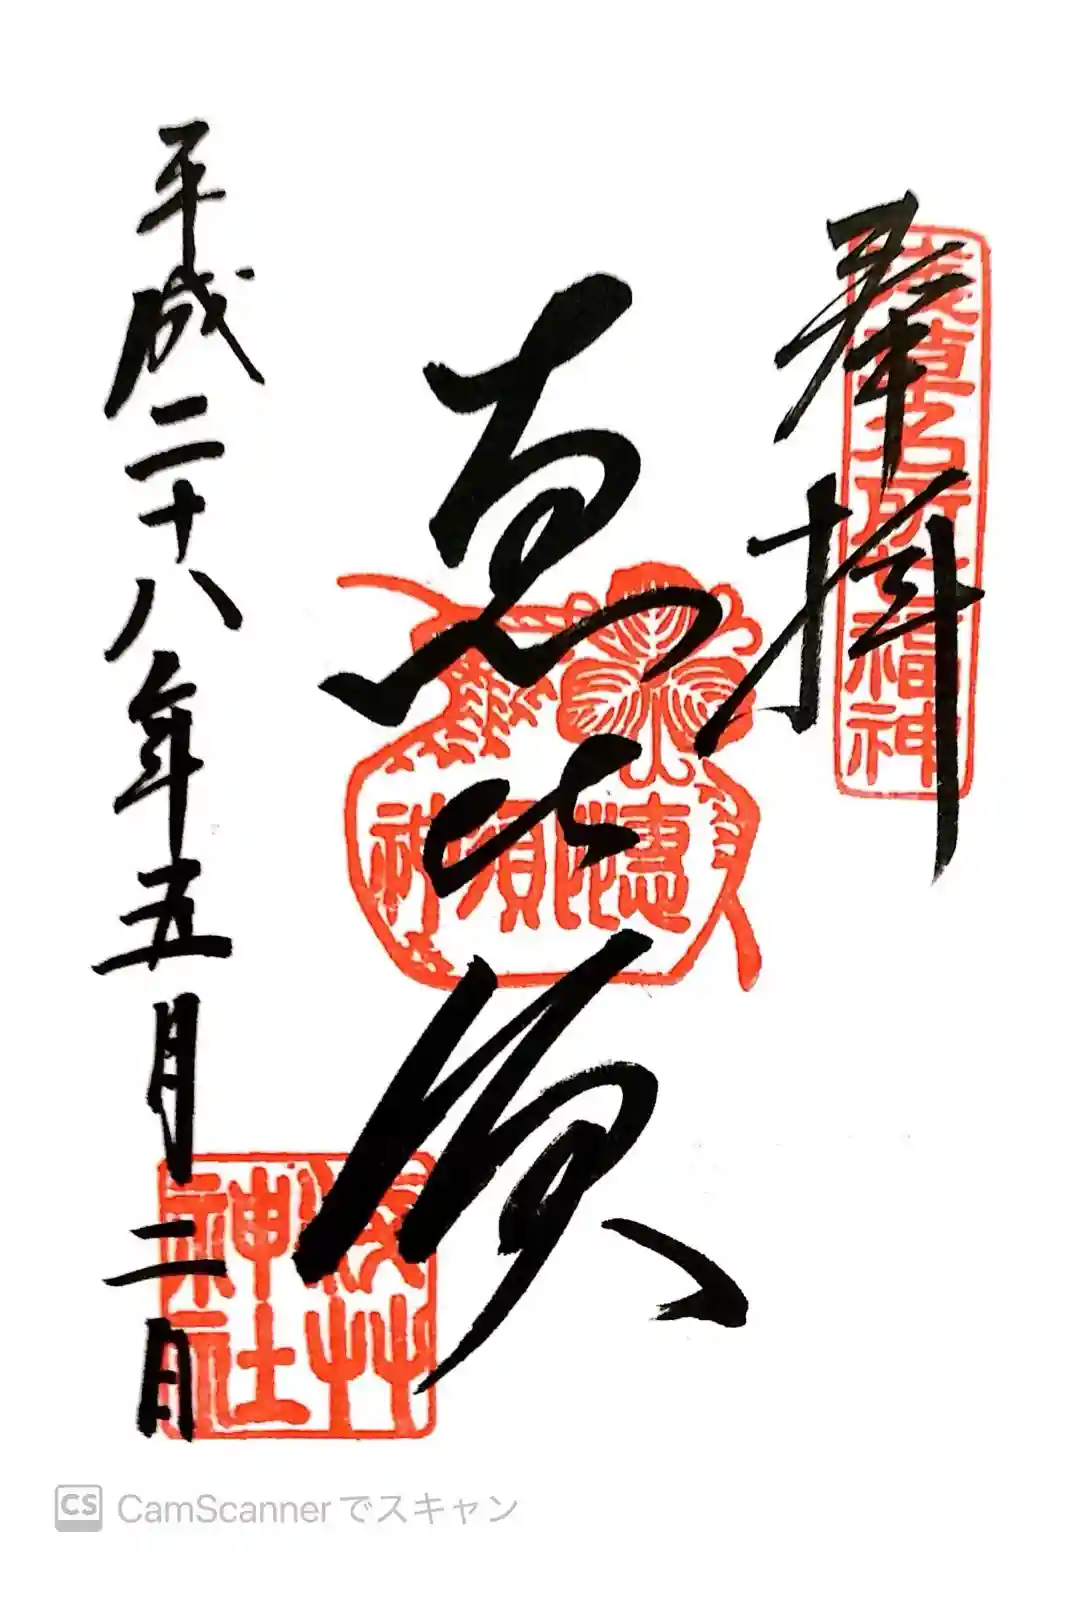 奉拝
浅草名所七福神
恵比須
惠比須神
平成二十八年五月二日
浅艸神社
CS CamScannerでスキャン